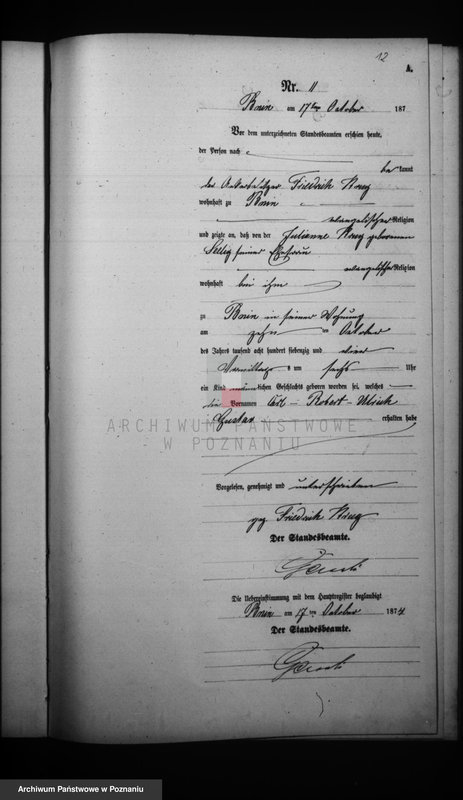 12
A.
Nr. 11
Bnin am 17ten October 187
Vor dem unterzeichneten Standesbeamten erschien heute,
der Person nach
be kannt
der Ackerbesitzer Friedrich Krug
wohnhaft zu Bnin
evangelischer Religion
und zeigte an, daß von der Julianne Krug geborenen
Seelig seiner Ehefrau
evangelischer Religion
wohnhaft bei ihm
zu Bnin in seiner Wohnung
am zehn ten October
des Jahrs tausend acht hundert siebenzig und vier
Vormittags um sechs Uhr
ein Kind männlichen Geschlechts geboren worden sei, welches
die Vornamen Carl Robert Ulrich
Gustav erhalten habe
ARCHIWUM PAŃSTWOWE
W POZNANIU
Vorgelesen, genehmigt und unterschrieben
gez Friedrich Krug
Der Standesbeamte.
Die Uebereinstimmung mit dem Hauptregister beglaubigt
Bnin am 17 ten October 1874
Der Standesbeamte.
Archiwum Państwowe w Poznaniu